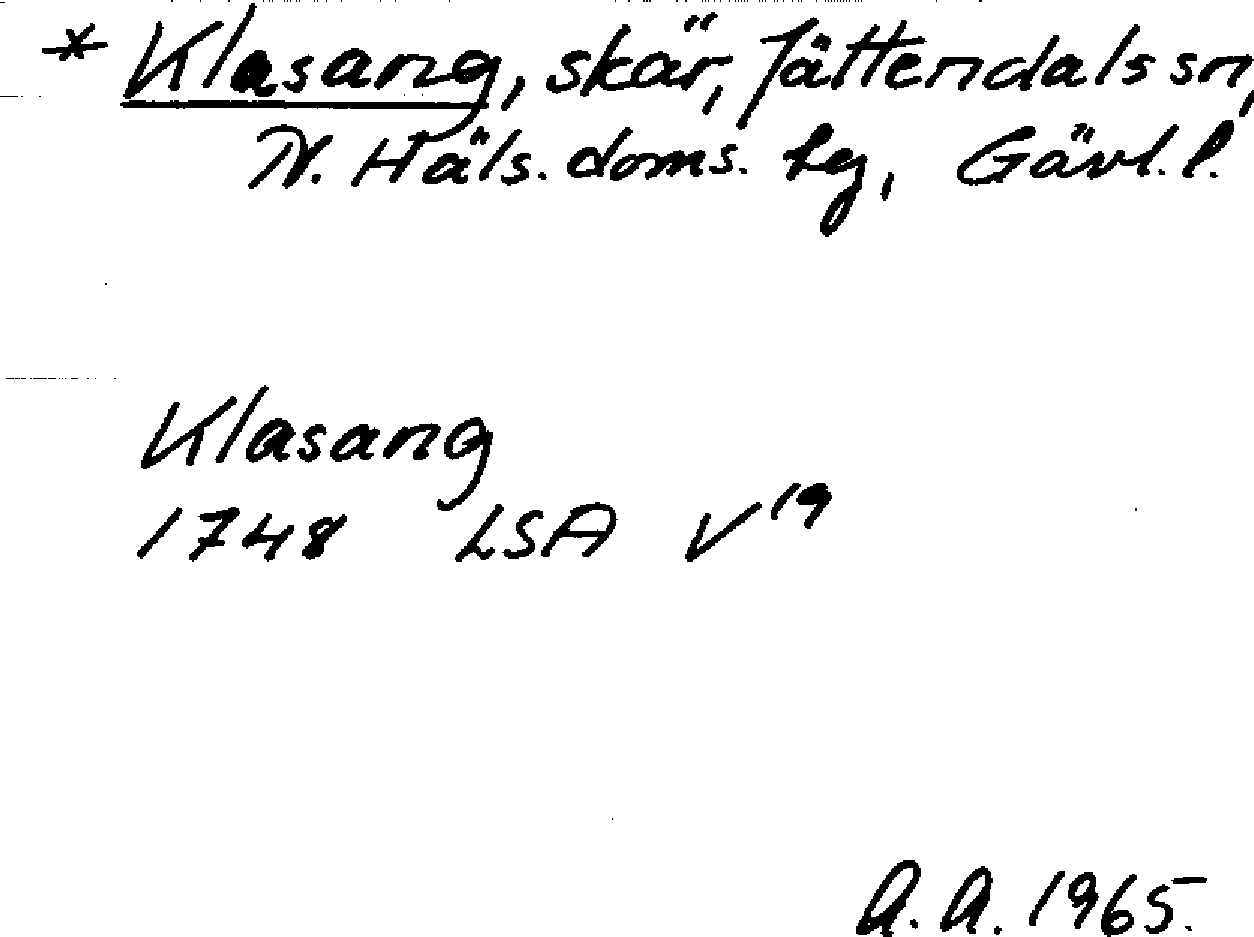 * Klasang, skär, Jättendals sn,
N. Häls. doms. hg, Gävl. l.
Klasang
1748 LSA V 19
A. A. 1965.